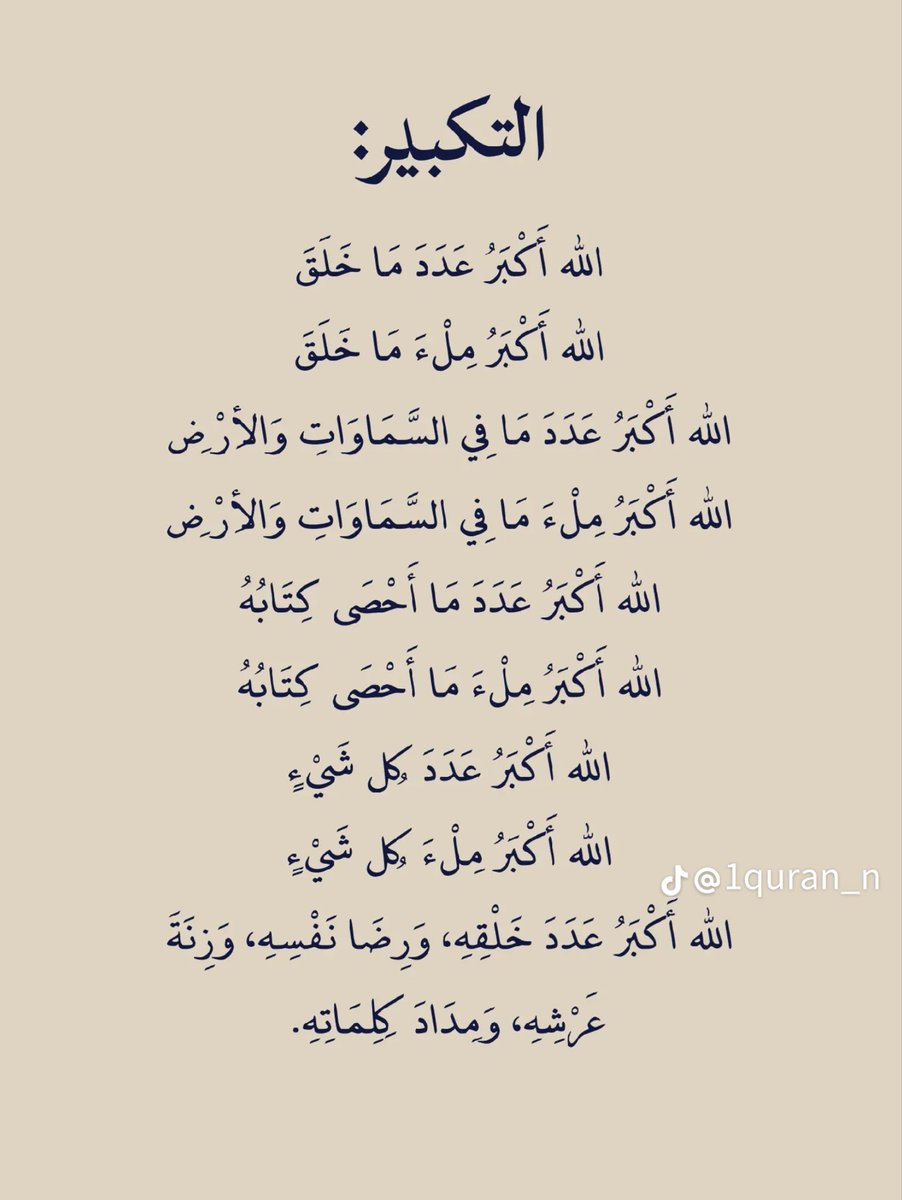 التكبير:
الله أَكْبَرُ عَدَدَ مَا خَلَقَ
الله أَكْبَرُ مِلْءَ مَا خَلَقَ
الله أَكْبَرُ عَدَدَ مَا فِي السَّمَاوَاتِ وَالأرْضِ
الله أَكْبَرُ مِلْءَ مَا فِي السَّمَاوَاتِ وَالأرْضِ
الله أَكْبَرُ عَدَدَ مَا أَحْصَى كِتَابُهُ
الله أَكْبَرُ مِلْءَ مَا أَحْصَى كِتَابُهُ
الله أَكْبَرُ عَدَدَ كُل شَيْءٍ
الله أَكْبَرُ مِلْءَ كُل شَيْءٍ
@1quran_n
الله أَكْبَرُ عَدَدَ خَلْقِهِ، وَرِضَا نَفْسِهِ، وَزِنَةَ
عَرْشِهِ، وَمِدَادَ كِلِمَاتِهِ.